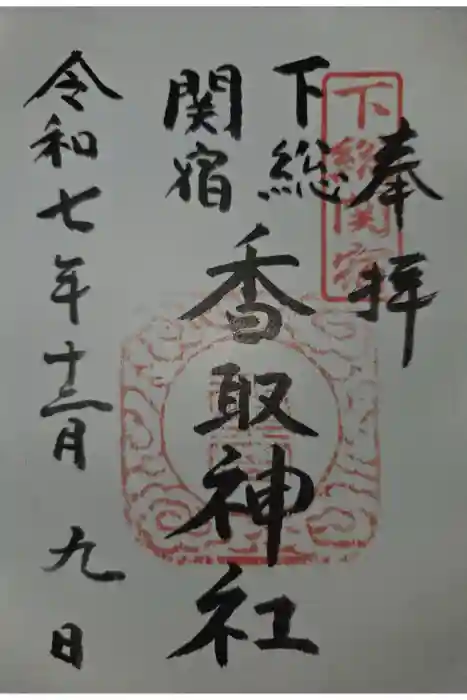 奉拝
下総関宿
下総
関宿
香取神社
令和七年十二月九日